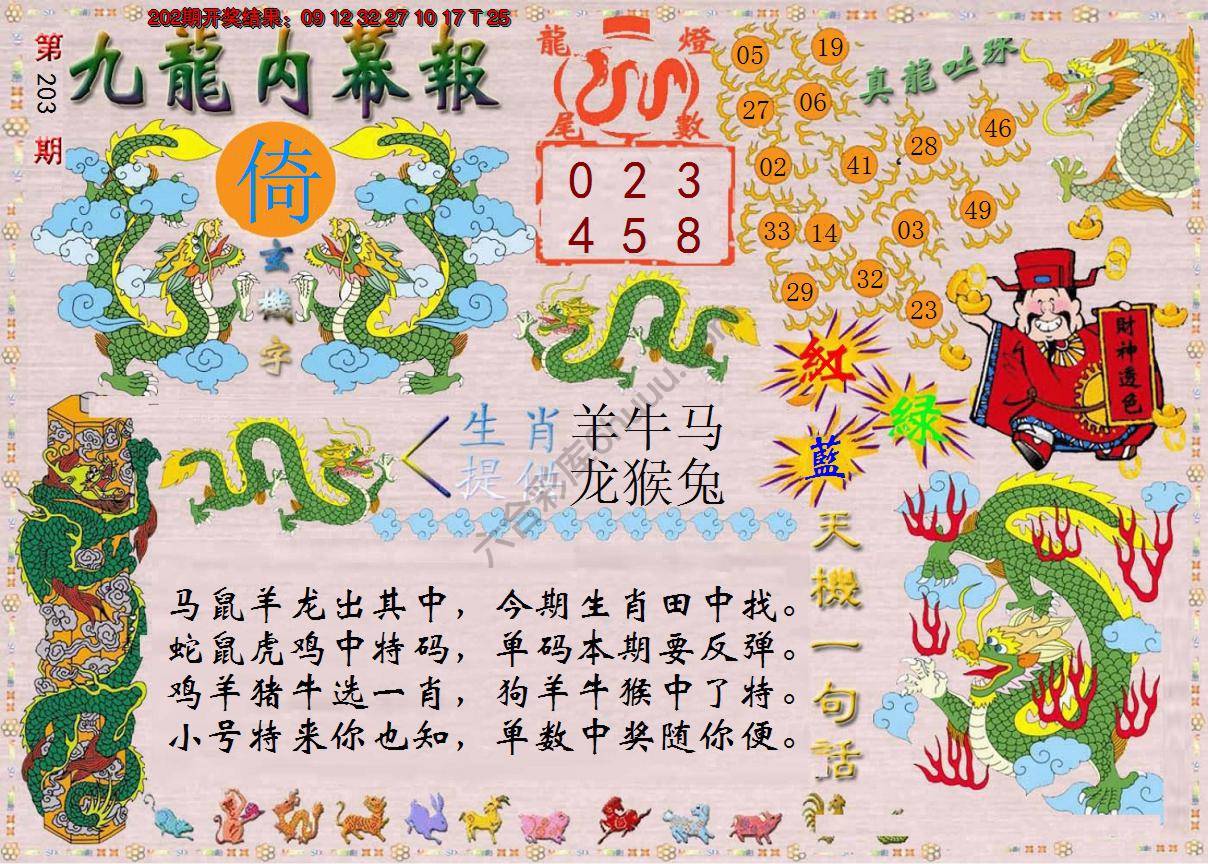 202期开奖结果：09 12 32 27 10 17 T 25
第203期
九龍内幕報
倚
玄機字
龍燈
尾數
0 2 3
4 5 8
真龍吐珠
05 19
27 06
28 46
02 41
33 14 03 49
29 32 23
財神透色
紅
綠
藍
生肖
提供
羊牛马
龙猴兔
天機一句話
马鼠羊龙出其中，今期生肖田中找。
蛇鼠虎鸡中特码，单码本期要反弹。
鸡羊猪牛选一肖，狗羊牛猴中了特。
小号特来你也知，单数中奖随你便。